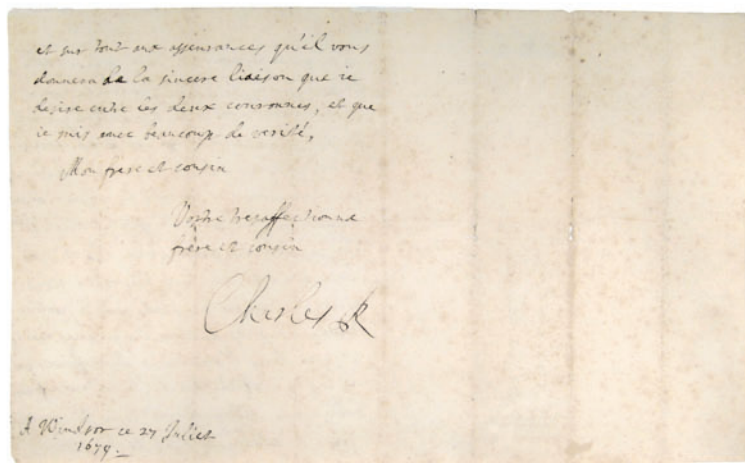 et sur tout aux assensances qu'il vous
donnera de la sincere liaison que je
desire entre les deux couronnes, et que
je suis avec beaucoup de verité,
Mon frere et cousin
Vostre tresaffectionné
frere et cousin
Charles R
A Windsor ce 27 Juliet
1679.